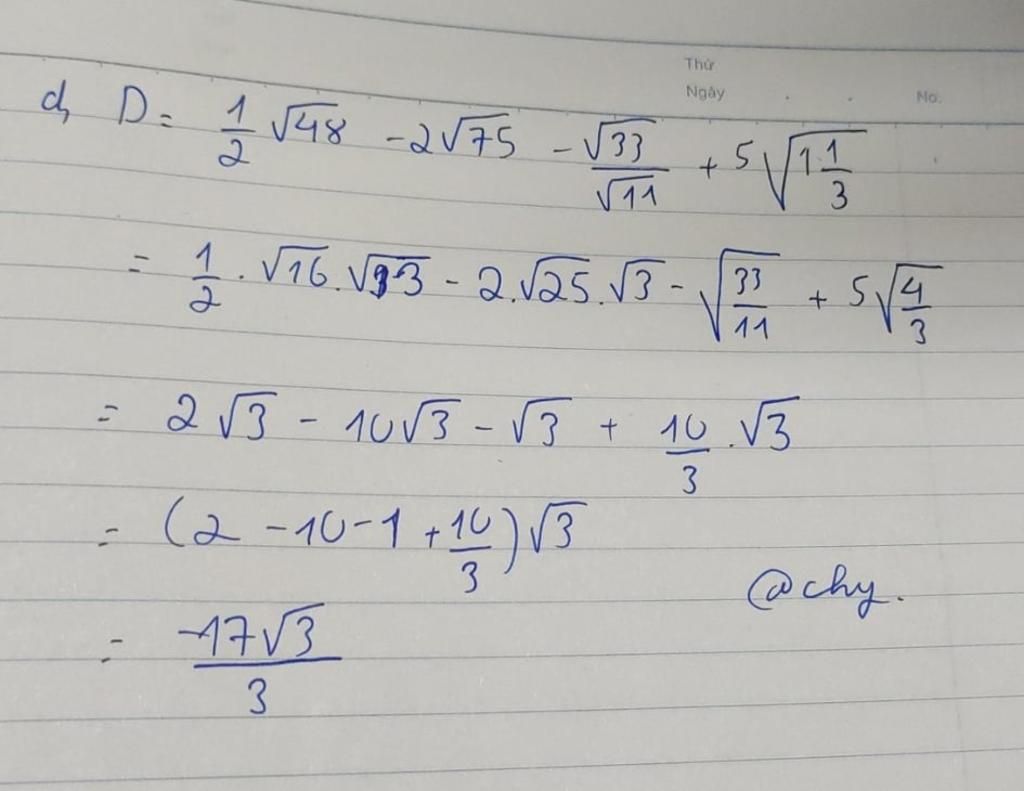 Thứ
Ngày . . No.
d, D = \frac{1}{2}\sqrt{48} - 2\sqrt{75} - \frac{\sqrt{33}}{\sqrt{11}} + 5\sqrt{1\frac{1}{3}}
= \frac{1}{2} . \sqrt{16} . \sqrt{3} - 2.\sqrt{25}.\sqrt{3} - \sqrt{\frac{33}{11}} + 5\sqrt{\frac{4}{3}}
= 2\sqrt{3} - 10\sqrt{3} - \sqrt{3} + \frac{10}{3}.\sqrt{3}
= (2 - 10 - 1 + \frac{10}{3})\sqrt{3}
@chy.
= \frac{-17\sqrt{3}}{3}